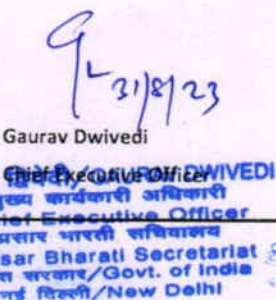 31/8/23
Gaurav Dwivedi
Chief Executive Officer
द्विवेदी/GAURAV DWIVEDI
मुख्य कार्यकारी अधिकारी
Chief Executive Officer
प्रसार भारती सचिवालय
sar Bharati Secretariat
सरकार/Govt. of India
नई दिल्ली/New Delhi